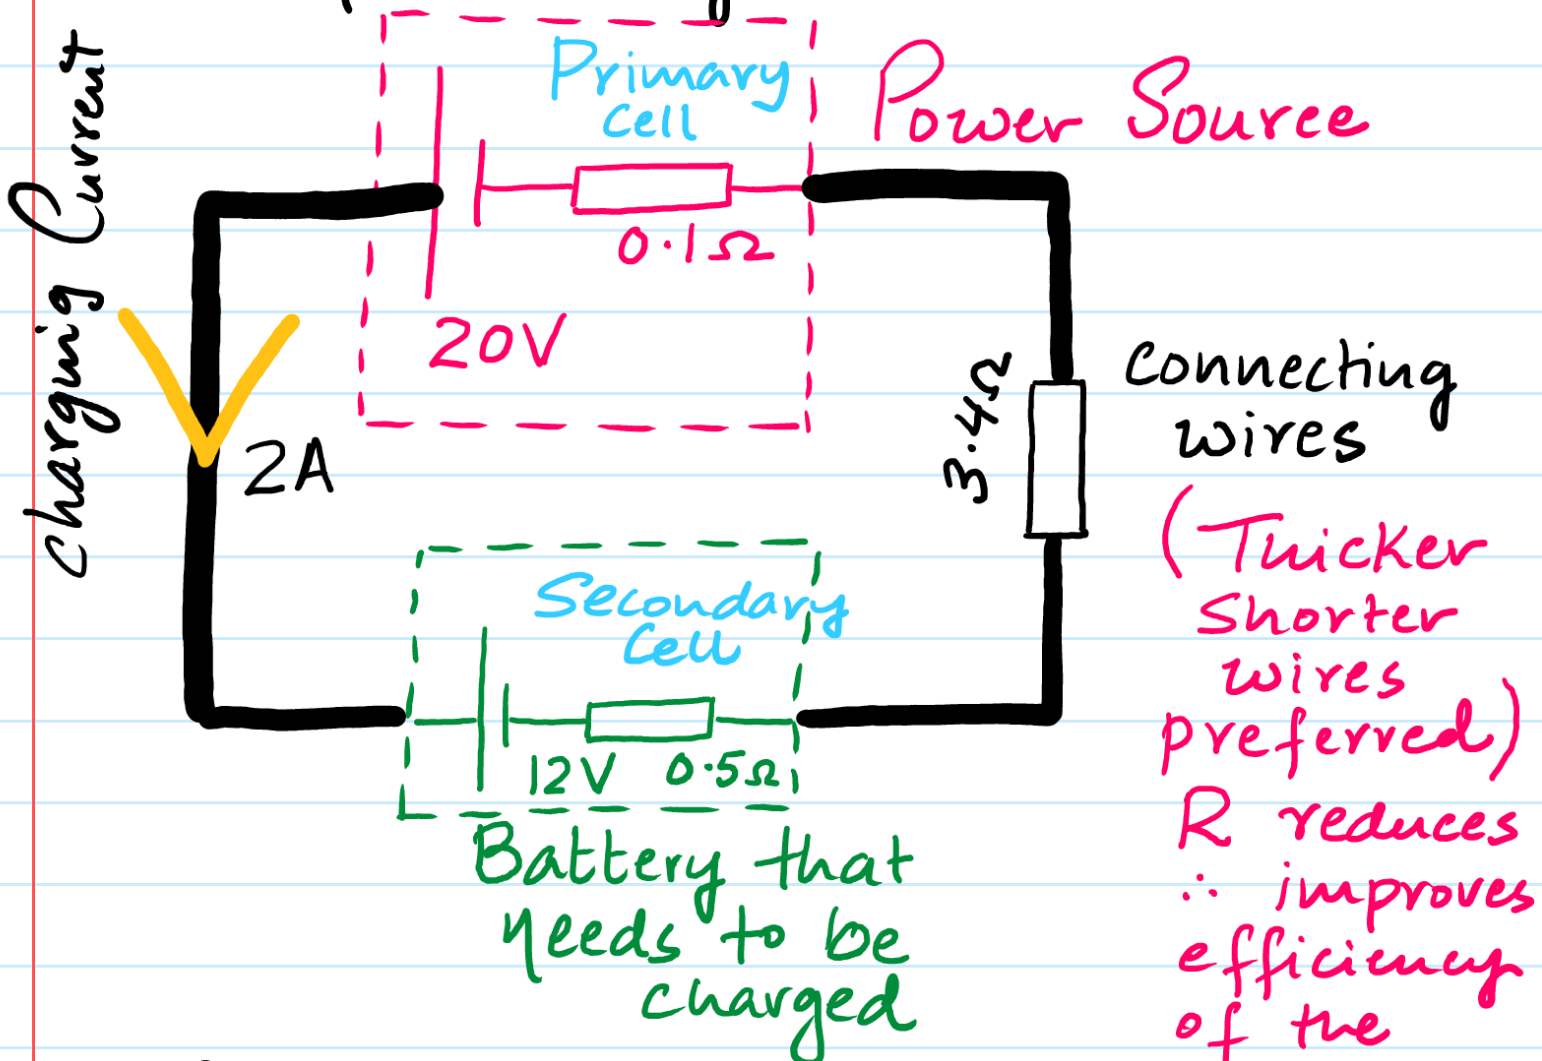 Charging Current
Primary
Cell
Power Source
0.1Ω
20V
2A
3.4Ω
Connecting
wires
(Thicker
Shorter
wires
preferred)
R reduces
∴ improves
efficiency
of the
Secondary
Cell
12V 0.5Ω
Battery that
needs to be
charged